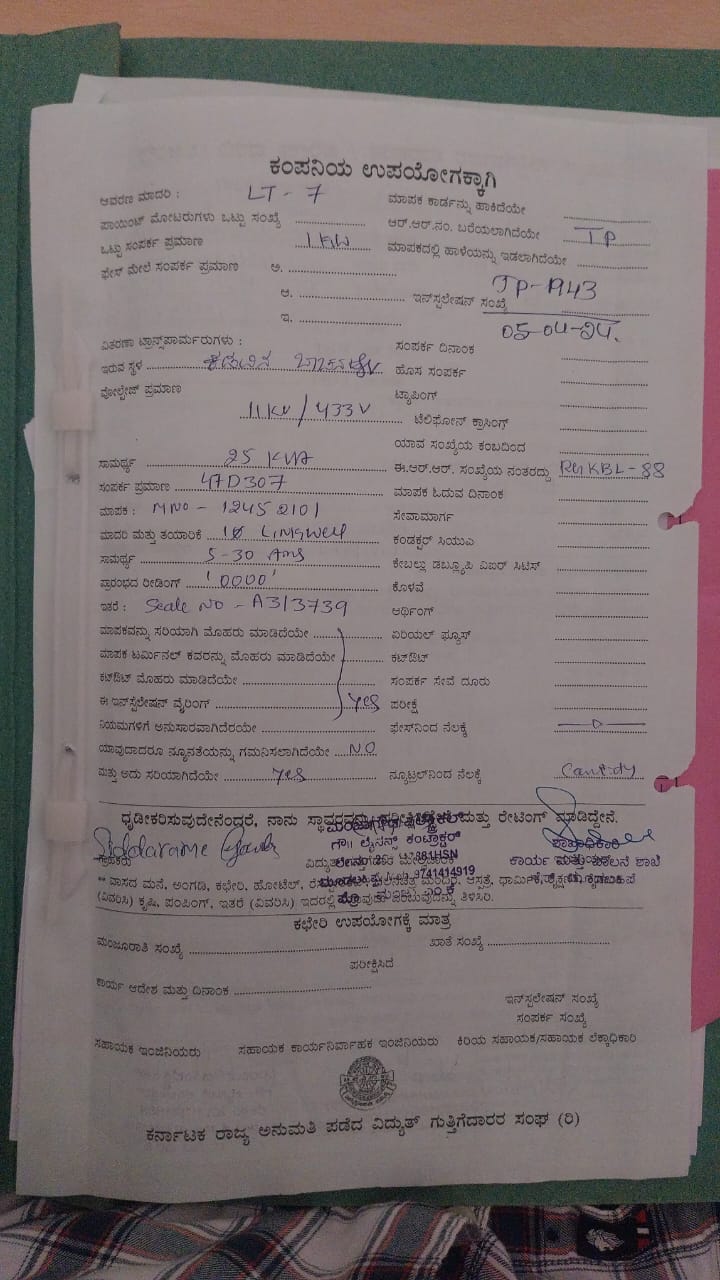 ಕಂಪನಿಯ ಉಪಯೋಗಕ್ಕಾಗಿ
ಆವರಣ ಮಾದರಿ : LT - 7 ಮಾಪಕ ಕಾರ್ಡನ್ನು ಹಾಕಿದೆಯೇ
ಪಾಯಿಂಟ್ ಮೋಟರುಗಳು ಒಟ್ಟು ಸಂಖ್ಯೆ ಆರ್.ಆರ್.ನಂ. ಬರೆಯಲಾಗಿದೆಯೇ TP
ಒಟ್ಟು ಸಂಪರ್ಕ ಪ್ರಮಾಣ 1 KW ಮಾಪಕದಲ್ಲಿ ಹಾಳೆಯನ್ನು ಇಡಲಾಗಿದೆಯೇ
ಫೇಸ್ ಮೇಲೆ ಸಂಪರ್ಕ ಪ್ರಮಾಣ ಅ.
ಆ. ಇನ್‌ಸ್ಟಲೇಷನ್ ಸಂಖ್ಯೆ TP-1943
ಇ. 05-04-24.
ವಿತರಣಾ ಟ್ರಾನ್ಸ್‌ಫಾರ್ಮರುಗಳು : ಸಂಪರ್ಕ ದಿನಾಂಕ
ಇರುವ ಸ್ಥಳ ಹೊಸ ಸಂಪರ್ಕ
ವೋಲ್ಟೇಜ್ ಪ್ರಮಾಣ ಟ್ಯಾಪಿಂಗ್
11KV / 433 V ಟೆಲಿಫೋನ್ ಕ್ರಾಸಿಂಗ್
ಯಾವ ಸಂಖ್ಯೆಯ ಕಂಬದಿಂದ
ಸಾಮರ್ಥ್ಯ 25 KVA ಈ.ಆರ್.ಆರ್. ಸಂಖ್ಯೆಯ ನಂತರದ್ದು KBL-88
ಸಂಪರ್ಕ ಪ್ರಮಾಣ 47D307 ಮಾಪಕ ಓದುವ ದಿನಾಂಕ
ಮಾಪಕ : MNO - 12452101 ಸೇವಾಮಾರ್ಗ
ಮಾದರಿ ಮತ್ತು ತಯಾರಿಕೆ 1Ø Lingwell ಕಂಡಕ್ಟರ್ ಸಿಯುಎ
ಸಾಮರ್ಥ್ಯ 5-30 Ams ಕೇಬಲ್ಲು ಡಬ್ಲ್ಯೂಪಿ ವಿಐರ್ ಸಿಟಿಸ್
ಪ್ರಾರಂಭದ ರೀಡಿಂಗ್ '0000' ಕೊಳವೆ
ಇತರೆ : Seale NO - A313739 ಆರ್ಥಿಂಗ್
ಮಾಪಕವನ್ನು ಸರಿಯಾಗಿ ಮೊಹರು ಮಾಡಿದೆಯೇ ಏರಿಯಲ್ ಫ್ಯೂಸ್
ಮಾಪಕ ಟರ್ಮಿನಲ್ ಕವರನ್ನು ಮೊಹರು ಮಾಡಿದೆಯೇ ಕಟ್‌ಔಟ್
ಕಟ್‌ಔಟ್ ಮೊಹರು ಮಾಡಿದೆಯೇ ಸಂಪರ್ಕ ಸೇವೆ ದೂರು
ಈ ಇನ್‌ಸ್ಟಲೇಷನ್ ವೈರಿಂಗ್ Yes ಪರೀಕ್ಷೆ
ನಿಯಮಗಳಿಗೆ ಅನುಸಾರವಾಗಿದೆರಯೇ ಫೇಸ್‌ನಿಂದ ನೆಲಕ್ಕೆ
ಯಾವುದಾದರೂ ನ್ಯೂನತೆಯನ್ನು ಗಮನಿಸಲಾಗಿದೆಯೇ NO
ಮತ್ತು ಅದು ಸರಿಯಾಗಿದೆಯೇ Yes ನ್ಯೂಟ್ರಲ್‌ನಿಂದ ನೆಲಕ್ಕೆ
ಧೃಡೀಕರಿಸುವುದೇನೆಂದರೆ, ನಾನು ಸ್ಥಾವರವನ್ನು ಮತ್ತು ರೇಟಿಂಗ್ ಮಾಡಿದ್ದೇನೆ.
ಗ್ರಾಹಕರು ಶಾಖಾಧಿಕಾರಿ
ಕಾರ್ಯ ಮತ್ತು ಪಾಲನೆ ಶಾಖೆ
9741414919
** ವಾಸದ ಮನೆ, ಅಂಗಡಿ, ಕಛೇರಿ, ಹೋಟೆಲ್,
(ವಿವರಿಸಿ) ಕೃಷಿ, ಪಂಪಿಂಗ್, ಇತರೆ (ವಿವರಿಸಿ) ಇದರಲ್ಲಿ ತಿಳಿಸಿರಿ.
ಕಛೇರಿ ಉಪಯೋಗಕ್ಕೆ ಮಾತ್ರ
ಮಂಜೂರಾತಿ ಸಂಖ್ಯೆ ಖಾತೆ ಸಂಖ್ಯೆ
ಪರೀಕ್ಷಿಸಿದ
ಕಾರ್ಯ ಆದೇಶ ಮತ್ತು ದಿನಾಂಕ
ಇನ್‌ಸ್ಟಲೇಷನ್ ಸಂಖ್ಯೆ
ಸಂಪರ್ಕ ಸಂಖ್ಯೆ
ಸಹಾಯಕ ಇಂಜಿನಿಯರು ಸಹಾಯಕ ಕಾರ್ಯನಿರ್ವಾಹಕ ಇಂಜಿನಿಯರು ಕಿರಿಯ ಸಹಾಯಕ/ಸಹಾಯಕ ಲೆಕ್ಕಾಧಿಕಾರಿ
ಕರ್ನಾಟಕ ರಾಜ್ಯ ಅನುಮತಿ ಪಡೆದ ವಿದ್ಯುತ್ ಗುತ್ತಿಗೆದಾರರ ಸಂಘ (ರಿ)